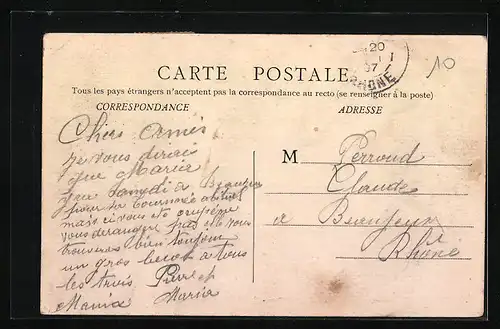 20
07
RHONE
10
CARTE POSTALE
Tous les pays étrangers n'acceptent pas la correspondance au recto (se renseigner à la poste)
CORRESPONDANCE
ADRESSE
Chers Amis
je vous dirai
que Maria
Samedi a
pour sa tournée
mais si vous
vous deranger pas elle vous
trouvera bien toujour
un gros becot a tous
les trois Pierre et
Maria Maria
M Perroud
Claude
a Beaujeux
Rhône